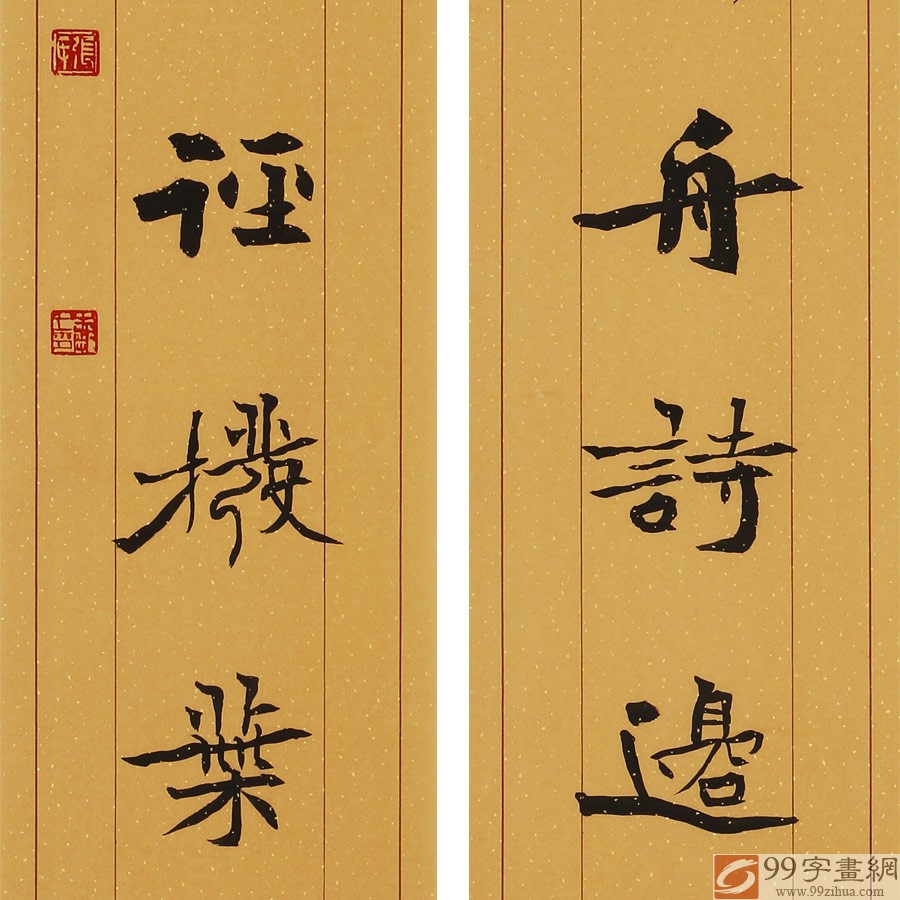 舟詩邊
径撥葉
99字畫網
www.99zihua.com